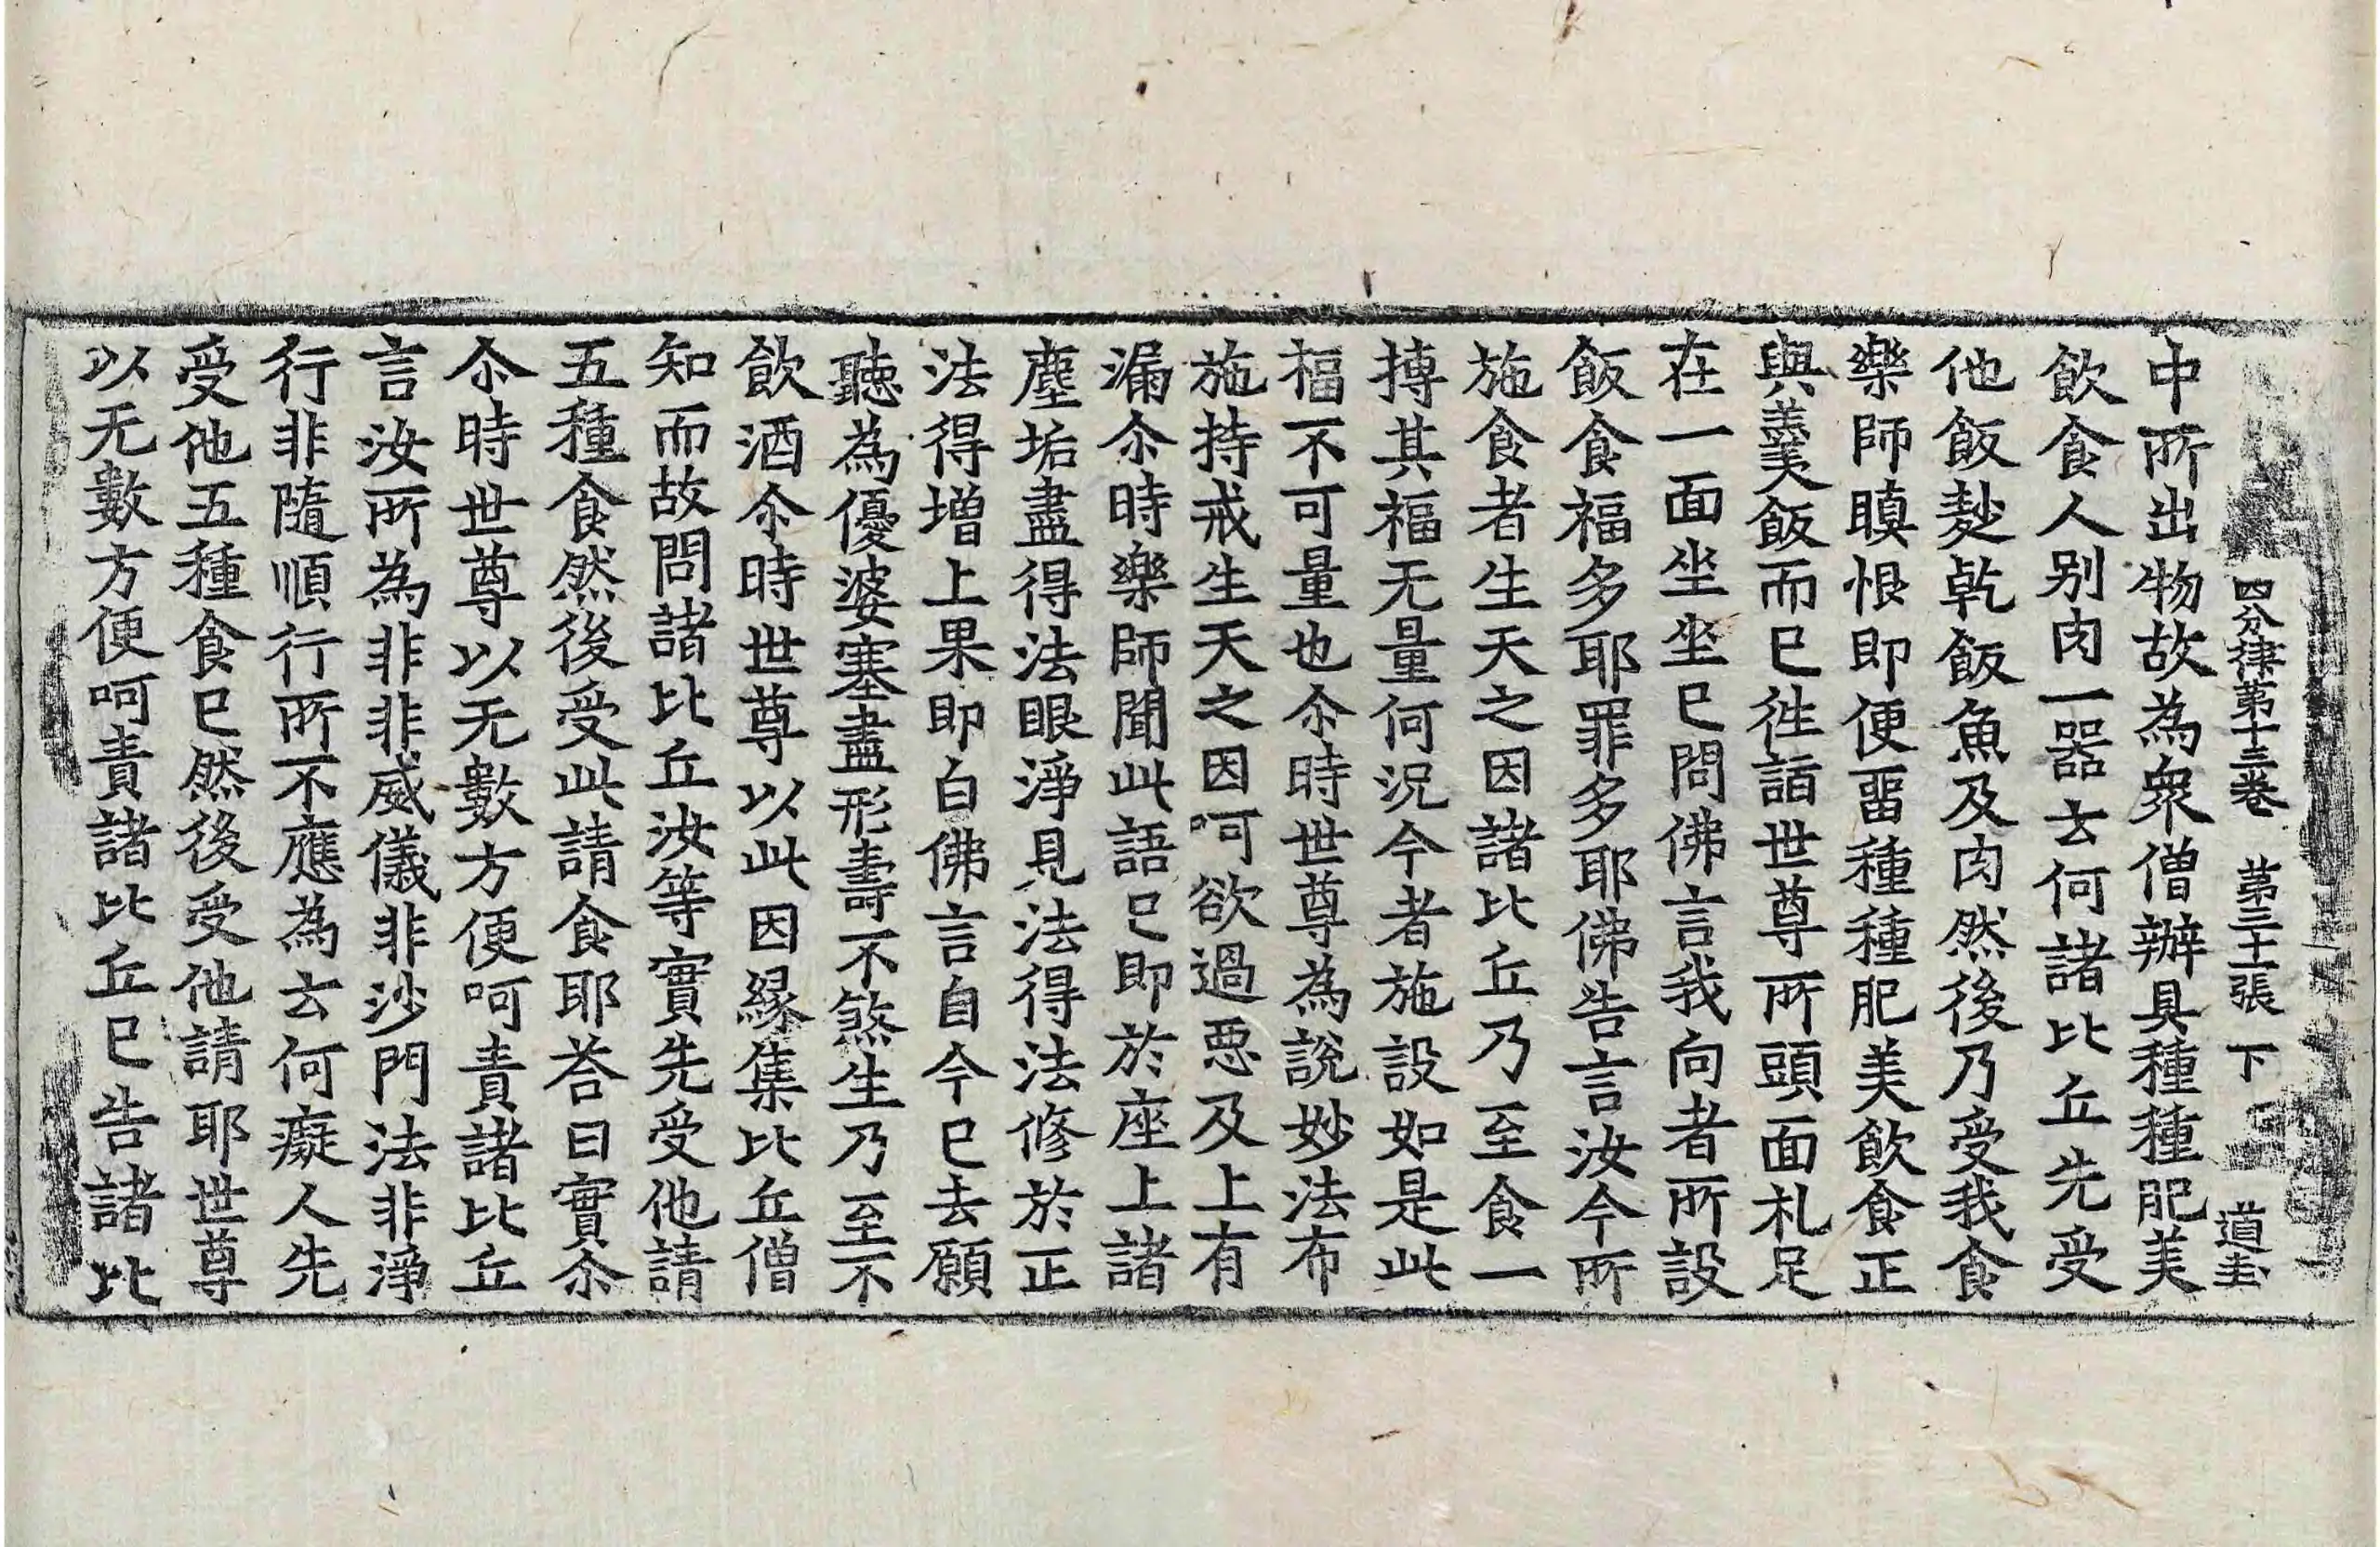 四分律第十三卷 第三十一張 下 道圭
中所出物故為衆僧辦具種種肥美
飲食人别肉一器云何諸比丘先受
他飯麨乹飯魚及肉然後乃受我食
樂師瞋恨即便畱種種肥美飲食正
與羹飯而已徃詣世尊所頭面礼足
在一面坐坐已問佛言我向者所設
飯食福多耶罪多耶佛告言汝今所
施食者生天之因諸比丘乃至食一
摶其福无量何況今者施設如是此
福不可量也尒時世尊為說妙法布
施持戒生天之因呵欲過悪及上有
漏尒時樂師聞此語已即於座上諸
塵垢盡得法眼淨見法得法修於正
法得增上果即白佛言自今已去願
聽為優婆塞盡形壽不煞生乃至不
飲酒尒時世尊以此因緣集比丘僧
知而故問諸比丘汝等實先受他請
五種食然後受此請食耶荅曰實尒
尒時世尊以无數方便呵責諸比丘
言汝所為非非威儀非沙門法非淨
行非隨順行所不應為云何癡人先
受他五種食已然後受他請耶世尊
以无數方便呵責諸比丘已告諸比